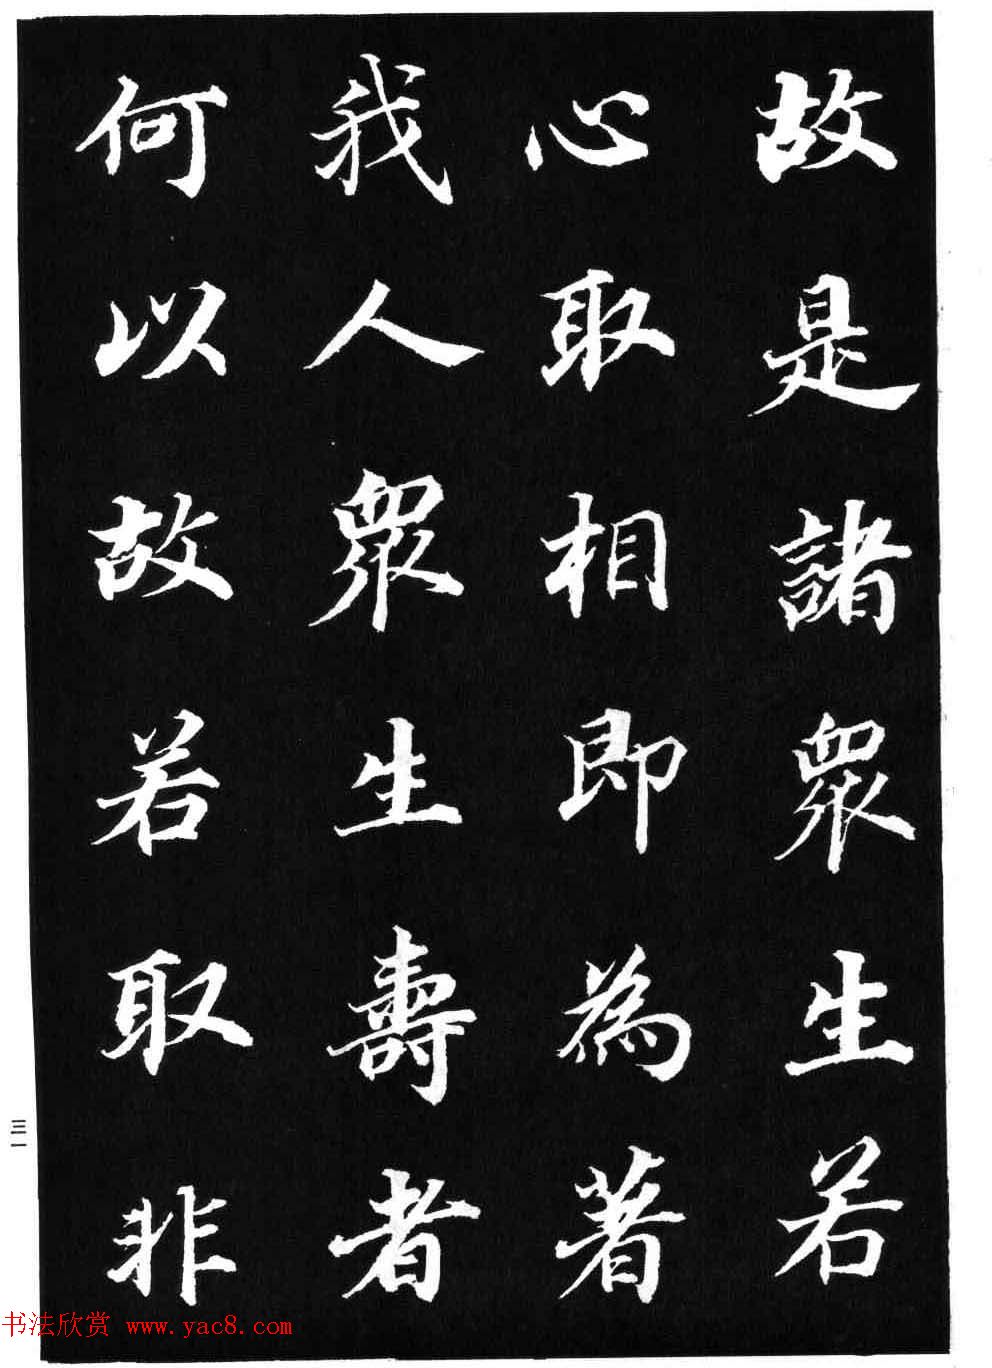 故是諸眾生若
心取相即為著
我人眾生壽者
何以故若取非
三一
书法欣赏 www.yac8.com